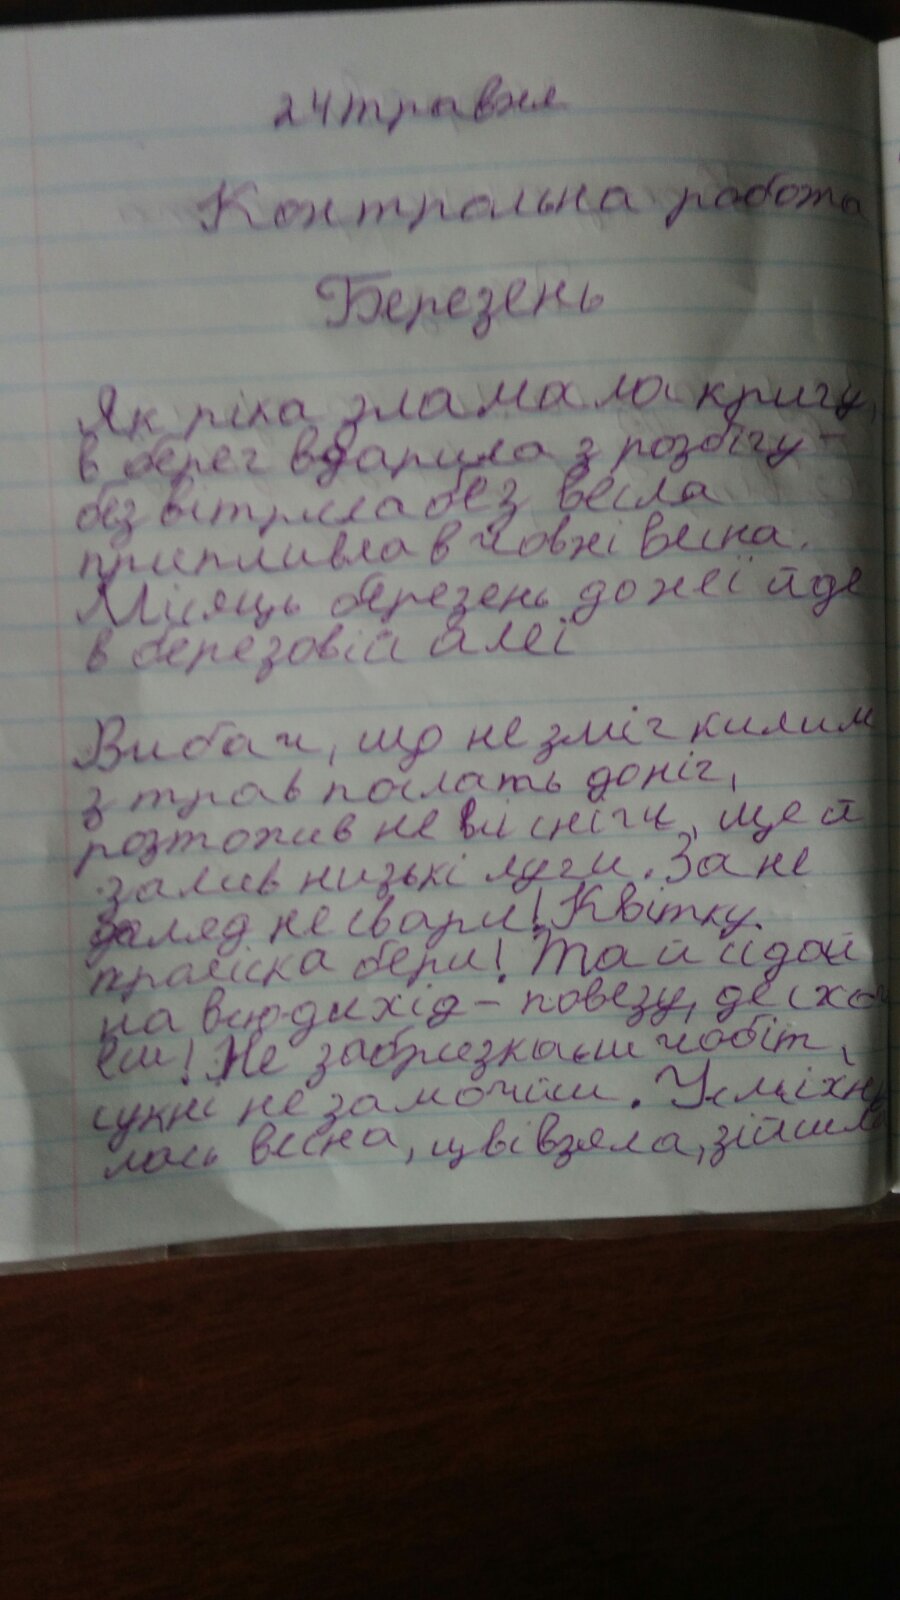 24 травня
Контрольна робота
Березень
Як ріка зламала кригу,
в берег вдарила з розбігу –
без вітрила без весла
припливла в човні весна.
Місяць березень до неї йде
в березовій алеї
Вибач, що не зміг килим
з трав послать доніг,
розтопив не всі сніги, ще й
залив низькі луги. За не
догляд не свари! Квітку.
проліска бери! Та й сідай
на всюдихід – повезу, де схоч
еш! Не забризкаєш чобіт,
сукні не замочиш. Усміхну
лась весна, цвівзяла, зійшла